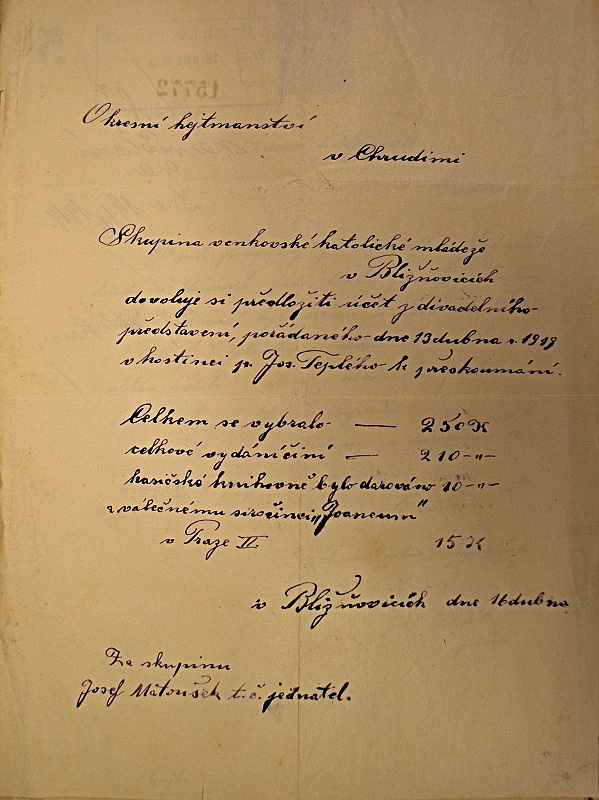 Okresní hejtmanství
v Chrudimi
Skupina venkovské katolické mládeže
v Bližňovicích
dovoluje si předložiti účet z divadelního
představení, pořádaného dne 13 dubna r. 1919
v hostinci p. Jos. Teplého k přezkoumání.
Celkem se vybralo — 250 K
celkové vydání činí — 210 -„-
hasičské knihovně bylo darováno 10 -„-
a válečnému sirotčinci „Joaneum"
v Praze II. 15 K
v Bližňovicích dne 16 dubna
Za skupinu
Josef Matoušek t. č. jednatel.
15772